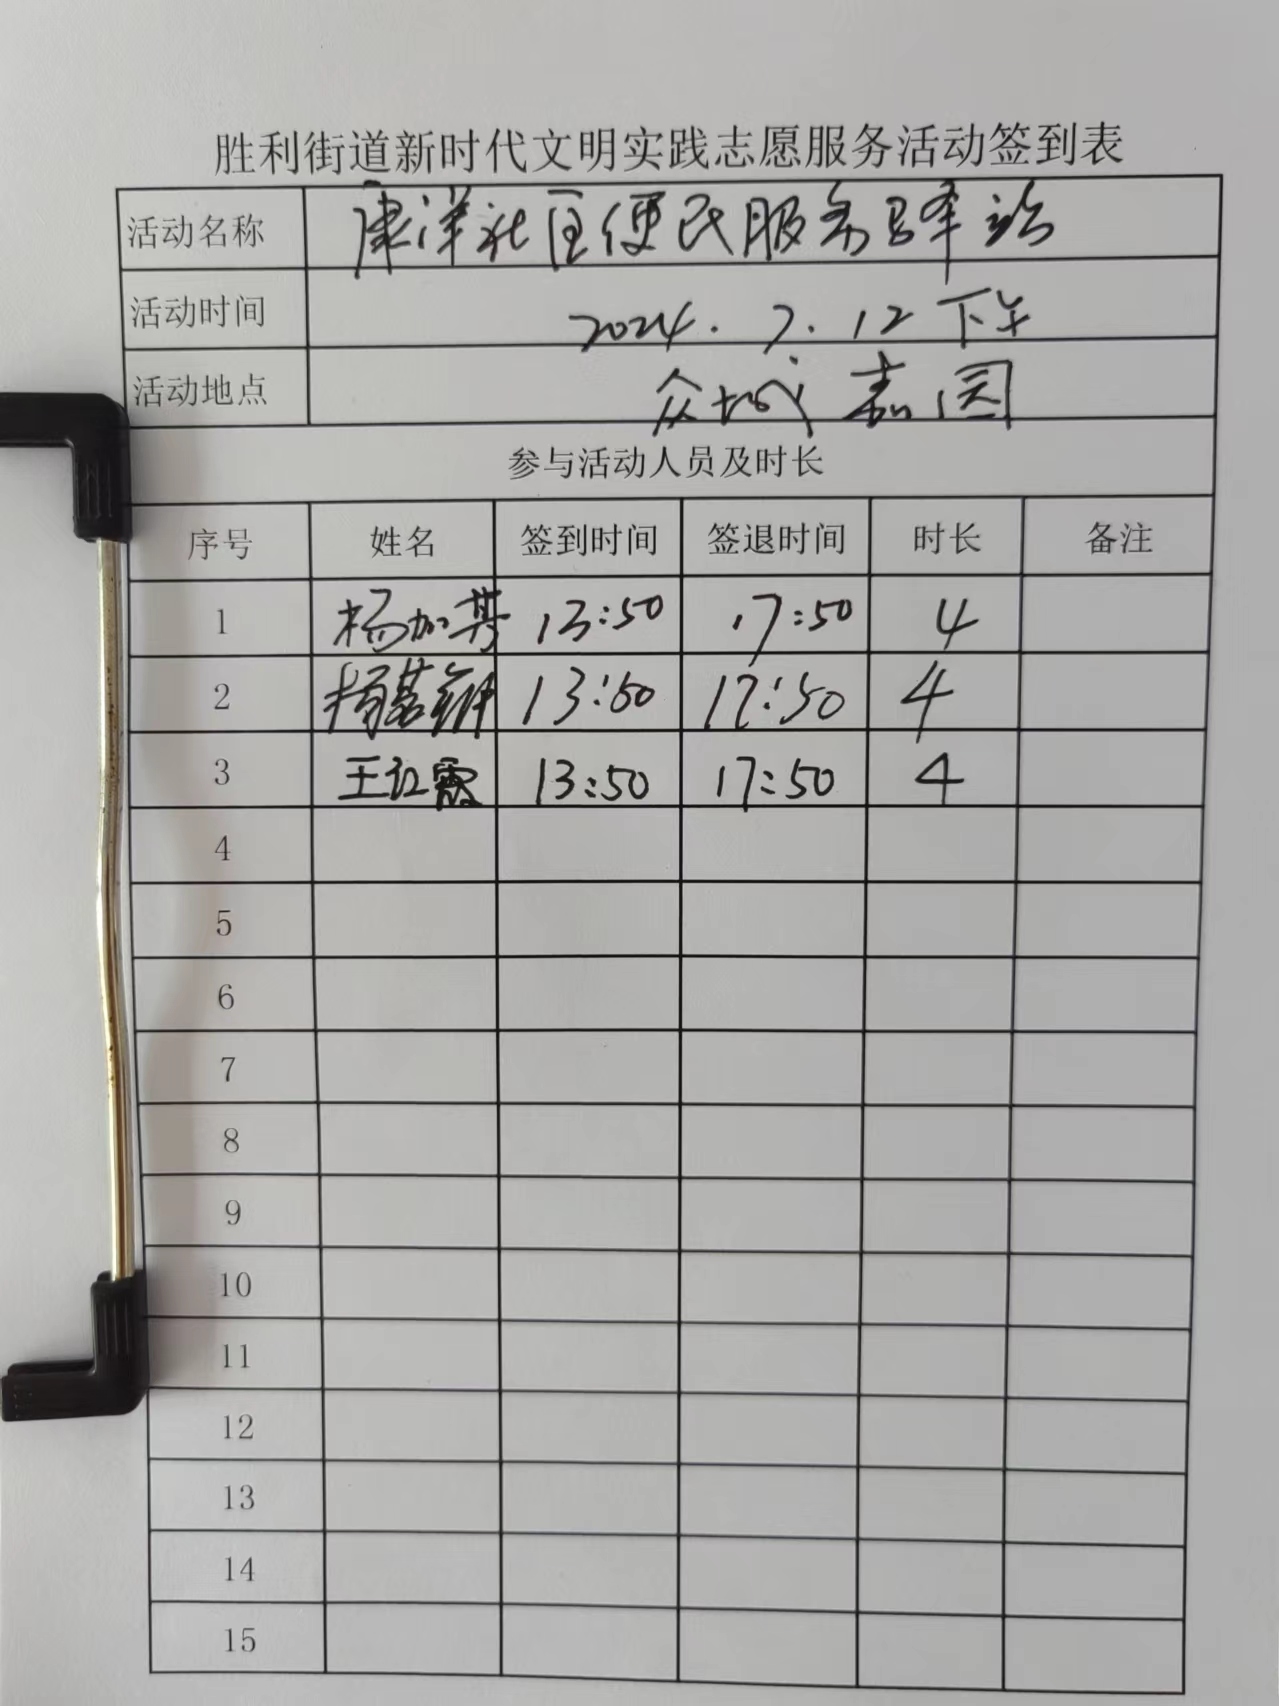 胜利街道新时代文明实践志愿服务活动签到表
活动名称 康洋社区便民服务驿站
活动时间 2024.7.12 下午
活动地点 众城嘉园
参与活动人员及时长
序号 姓名 签到时间 签退时间 时长 备注
1 杨加芬 13:50 17:50 4
2 13:50 17:50 4
3 王红霞 13:50 17:50 4
4
5
6
7
8
9
10
11
12
13
14
15